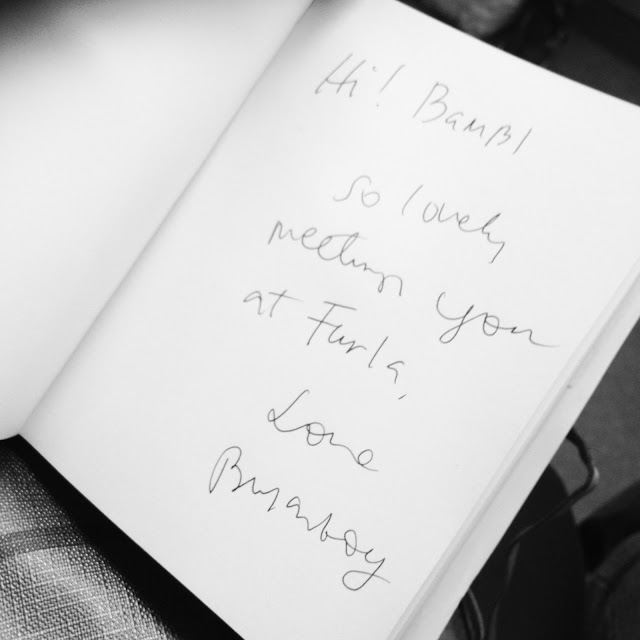 Hi! BamBI
so lovely
meeting you
at Furla,
Love
Bryanboy